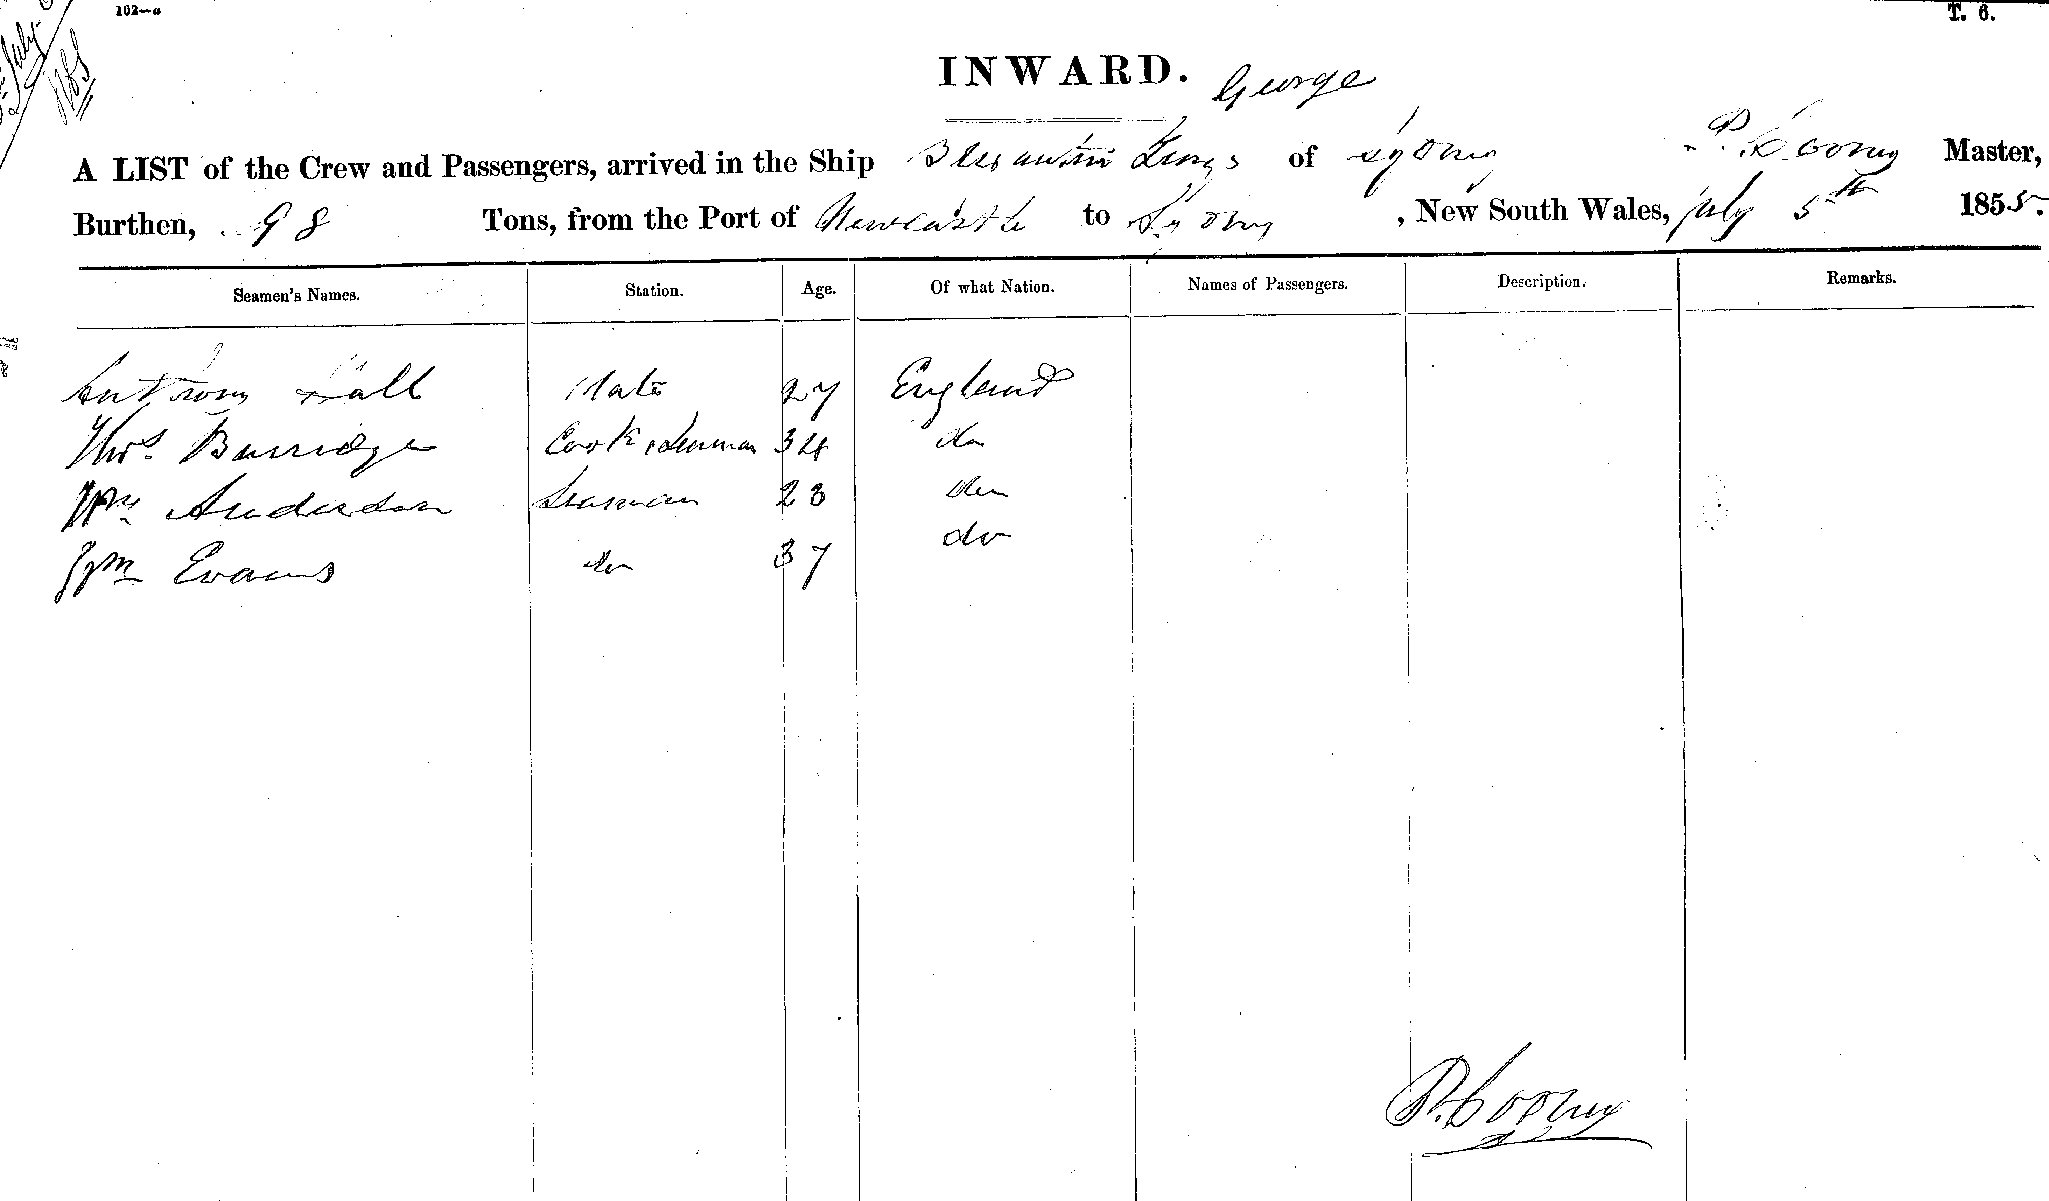 102—a
T. 6.
July
INWARD.
George
A LIST of the Crew and Passengers, arrived in the Ship Brigantine of Sydney P. Cooney Master,
Burthen, 98 Tons, from the Port of Newcastle to Sydney, New South Wales, July 5th 1855.
Seamen's Names. Station. Age. Of what Nation. Names of Passengers. Description. Remarks.
Anthony Hall Mate 27 England
Thos. Burridge Cook & Seaman 34 do
Wm Anderson Seaman 23 do
Wm Evans do 37 do
P. Cooney